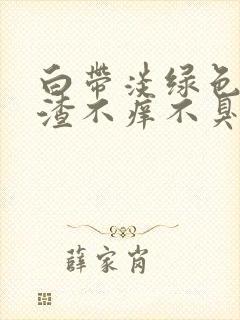 白带淡绿色
渣不痒不臭
薛家肖